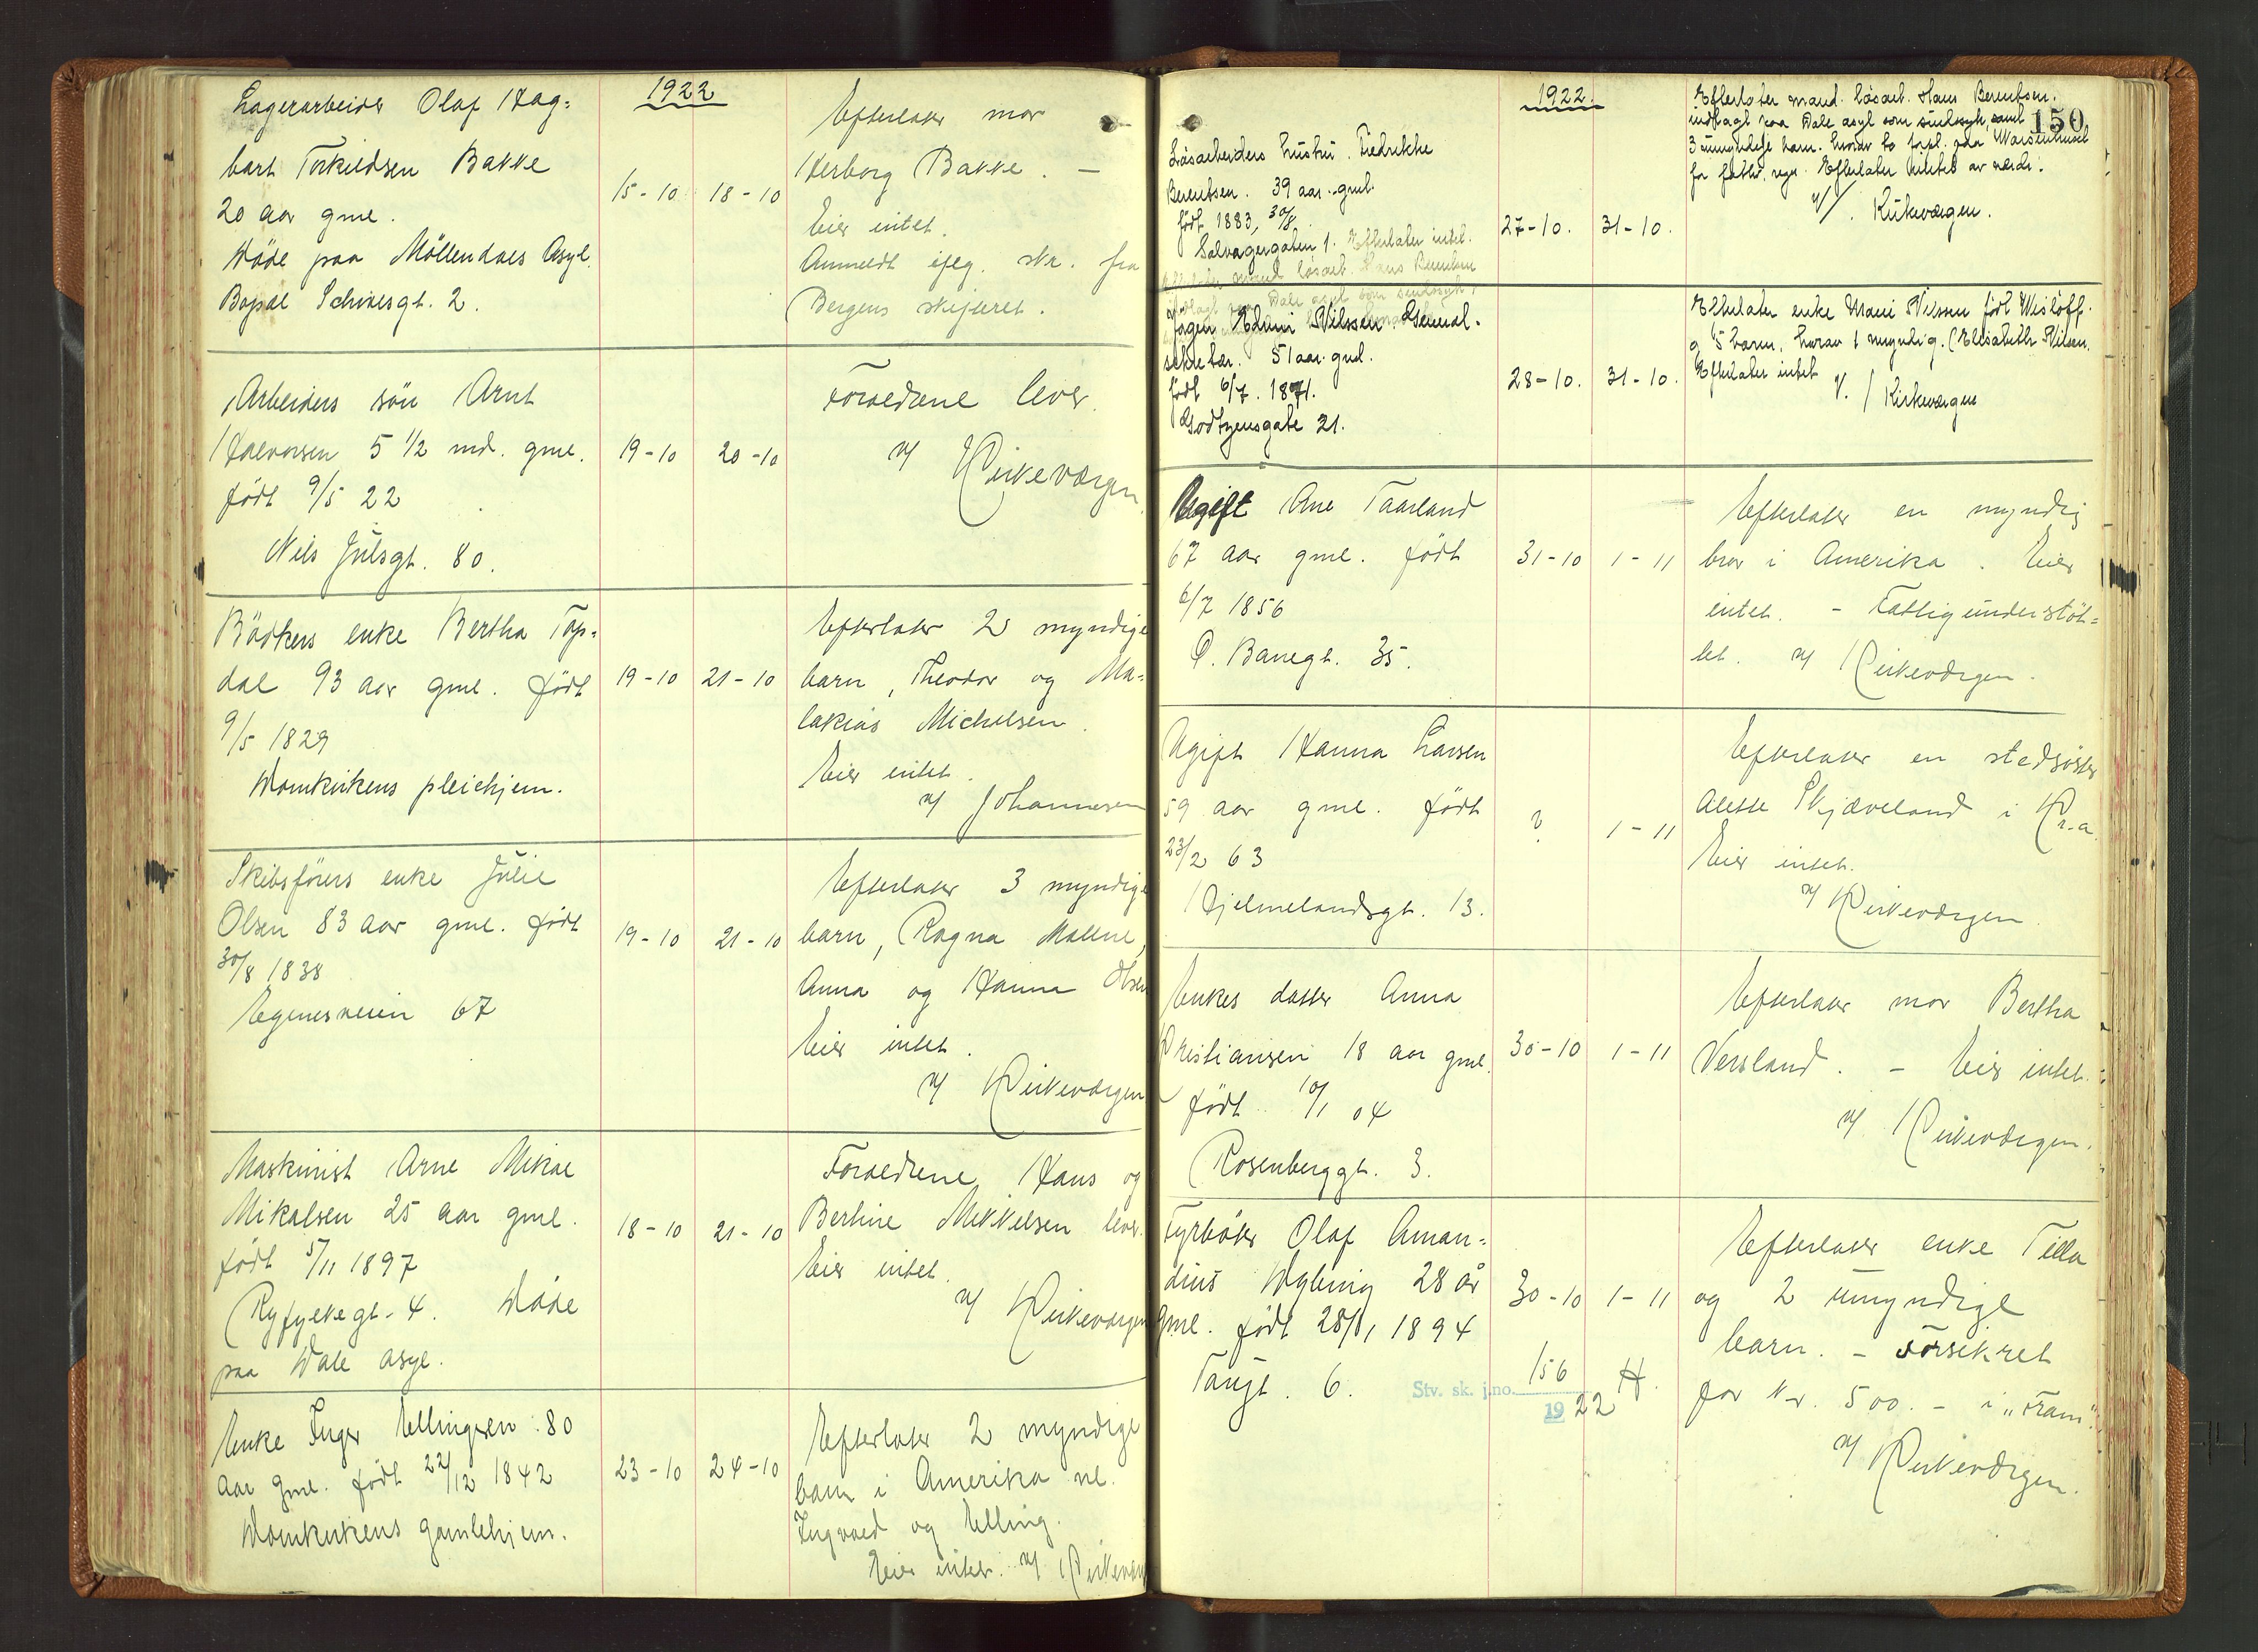 1922
Lagerarbeider Olaf Hag-
bart Torkildsen Bakke
20 aar gml.
Döde paa Möllendals Asyl.
Bopæl Schivesgt. 2.
15-10 18-10
Efterlater mor
Herborg Bakke. —
Eier intet.
Anmeldt ifølg. skr. fra
Bergens skifteret.
Arbeiders sön Arnt
Halvorsen 5 1/2 md. gml.
född 9/5 22
Nils Juelsgt. 80.
19-10 20-10
Foræeldrene lever.
v/ Kirkevergen
Bödkers enke Bertha Top-
dal 93 aar gml. född
9/5 1829
Domkirkens pleiehjem.
19-10 21-10
Efterlater 2 myndige
barn, Theodor og Ma-
lakias Michelsen.
Eier intet.
v/ Johannesen
Skibsförers enke Julie
Olsen 83 aar gml. född
30/8 1838
Egenesveien 67
19-10 21-10
Efterlater 3 myndige
barn, Ragna Malene,
Anna og Hanna Olsen
Eier intet.
v/ Kirkeværgen
Maskinist Arne Mikal
Mikalsen 25 aar gml.
född 5/11 1897
Ryfylkegt. 4. Döde
paa Dale asyl.
18-10 21-10
Forældrene Hans og
Bertine Mikkelsen lever.
Eier intet.
v/ Kirkeværgen
Enke Inger Ellingsen 80
aar gml. född 22/12 1842
Domkirkens gamlehjem.
23-10 24-10
Efterlater 2 myndige
barn i Amerika nl.
Ingvald og Elling.
Eier intet. v/ Kirkevær
1922.
150
Lösarbeiders hustru. Fredrikke
Berentsen. 39 aar. gml.
född 1883, 30/8.
Solvagergaten 1. Efterlater intet.
Efterlater mand lösarb. Hans Berentsen
indlagt paa Dale asyl som sindssyk,
27-10. 31-10.
Efterlater mand. lösarb. Hans Berentsen.
indlagt paa Dale asyl som sindssyk, samt
3 umyndige barn. hvorav to forpl. paa Waisenhuset
for fattv. regn. Efterlater intet av værdi.
v/. Kirkeværgen.
Jagen Edvin Nilssen General-
sekretær. 51 aar. gml.
född 6/7. 1871.
Godtzensgate 21.
28-10. 31-10.
Efterlater enke Marie Nilssen född Wislöff.
og 5 barn, hvorav 1 myndig. (Elisabeth Nilsen.
Efterlater intet
v. / Kirkeværgen
Ugift Ane Taarland
67 aar gml. född
6/7 1856
Ö. Banegt. 35.
31-10 1-11
Efterlater en myndig
bror i Amerika. Eier
intet. - Fattigunderstöt-
tet. v/ Kirkeværgen.
Ugift Hanna Larsen
59 aar gml. född
23/2 63
Hjelmelandsgt. 13.
? 1-11
Efterlater en stedsöster
Alette Skjæveland i Kr.a.
Eier intet.
v/ Kirkeværgen
Enkes datter Anna
Kristiansen 18 aar gml.
född 10/1 04
Rosenberggt. 3.
30-10 1-11
Efterlater mor Bertha
Versland. - Eier intet.
v/ Kirkeværgen.
Fyrböter Olaf Aman-
dius Dybing 28 år
gml. född 28/1 1894
Taugt. 6.
30-10 1-11
Stv. sk. j.no. 156 H.
19 22
Efterlater enke Tilla
og 2 umyndige
barn. - Forsikret
for kr. 500.- i „Fram“.
v/ Kirkeværgen.